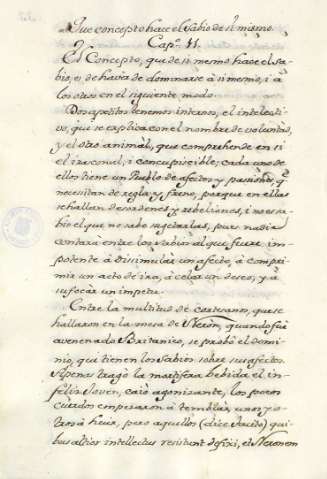 Que concepto hace el Sabio de si mismo.
Cap.º VI.
El Concepto, que de si mismo hace el Sa-
bio, es de haverse de dominarse à si mismo, i à
los otros en el siguiente modo.
Dos apetitos tenemos internos, el intelecti-
vo, que se explica con el nombre de voluntad,
y el otro animal, que comprehende en si
el irascible, i concupiscible; cada uno de
ellos tiene un Pueblo de afectos y pasiones, q.e
necesitan de regla y freno, porque en ellas
se hallan desordenes y rebeliones, i no es sa-
bio el que no sabe sugetarlas, pues nadie
contarà entre los sabios al que fuere im-
potente à disimular un afecto, à compri-
mir un acto de ira, à celar un deseo, y à
sufocar un impetu.
Entre la multitud de cortesanos, que se
hallaron en la mesa de Neròn, quando fuè
avenenado Britanico, se probò el domi-
nio, que tienen los Sabios sobre sus afectos.
Apenas tragò la mortifera bebida el in-
feliz Joven, caiò agonizante, los pocos
cuerdos empesaron à temblar, unos y o-
tros à huir, pero aquellos (dice Tacito) qui-
bus altior intellectus resistunt defixi, et Neronem